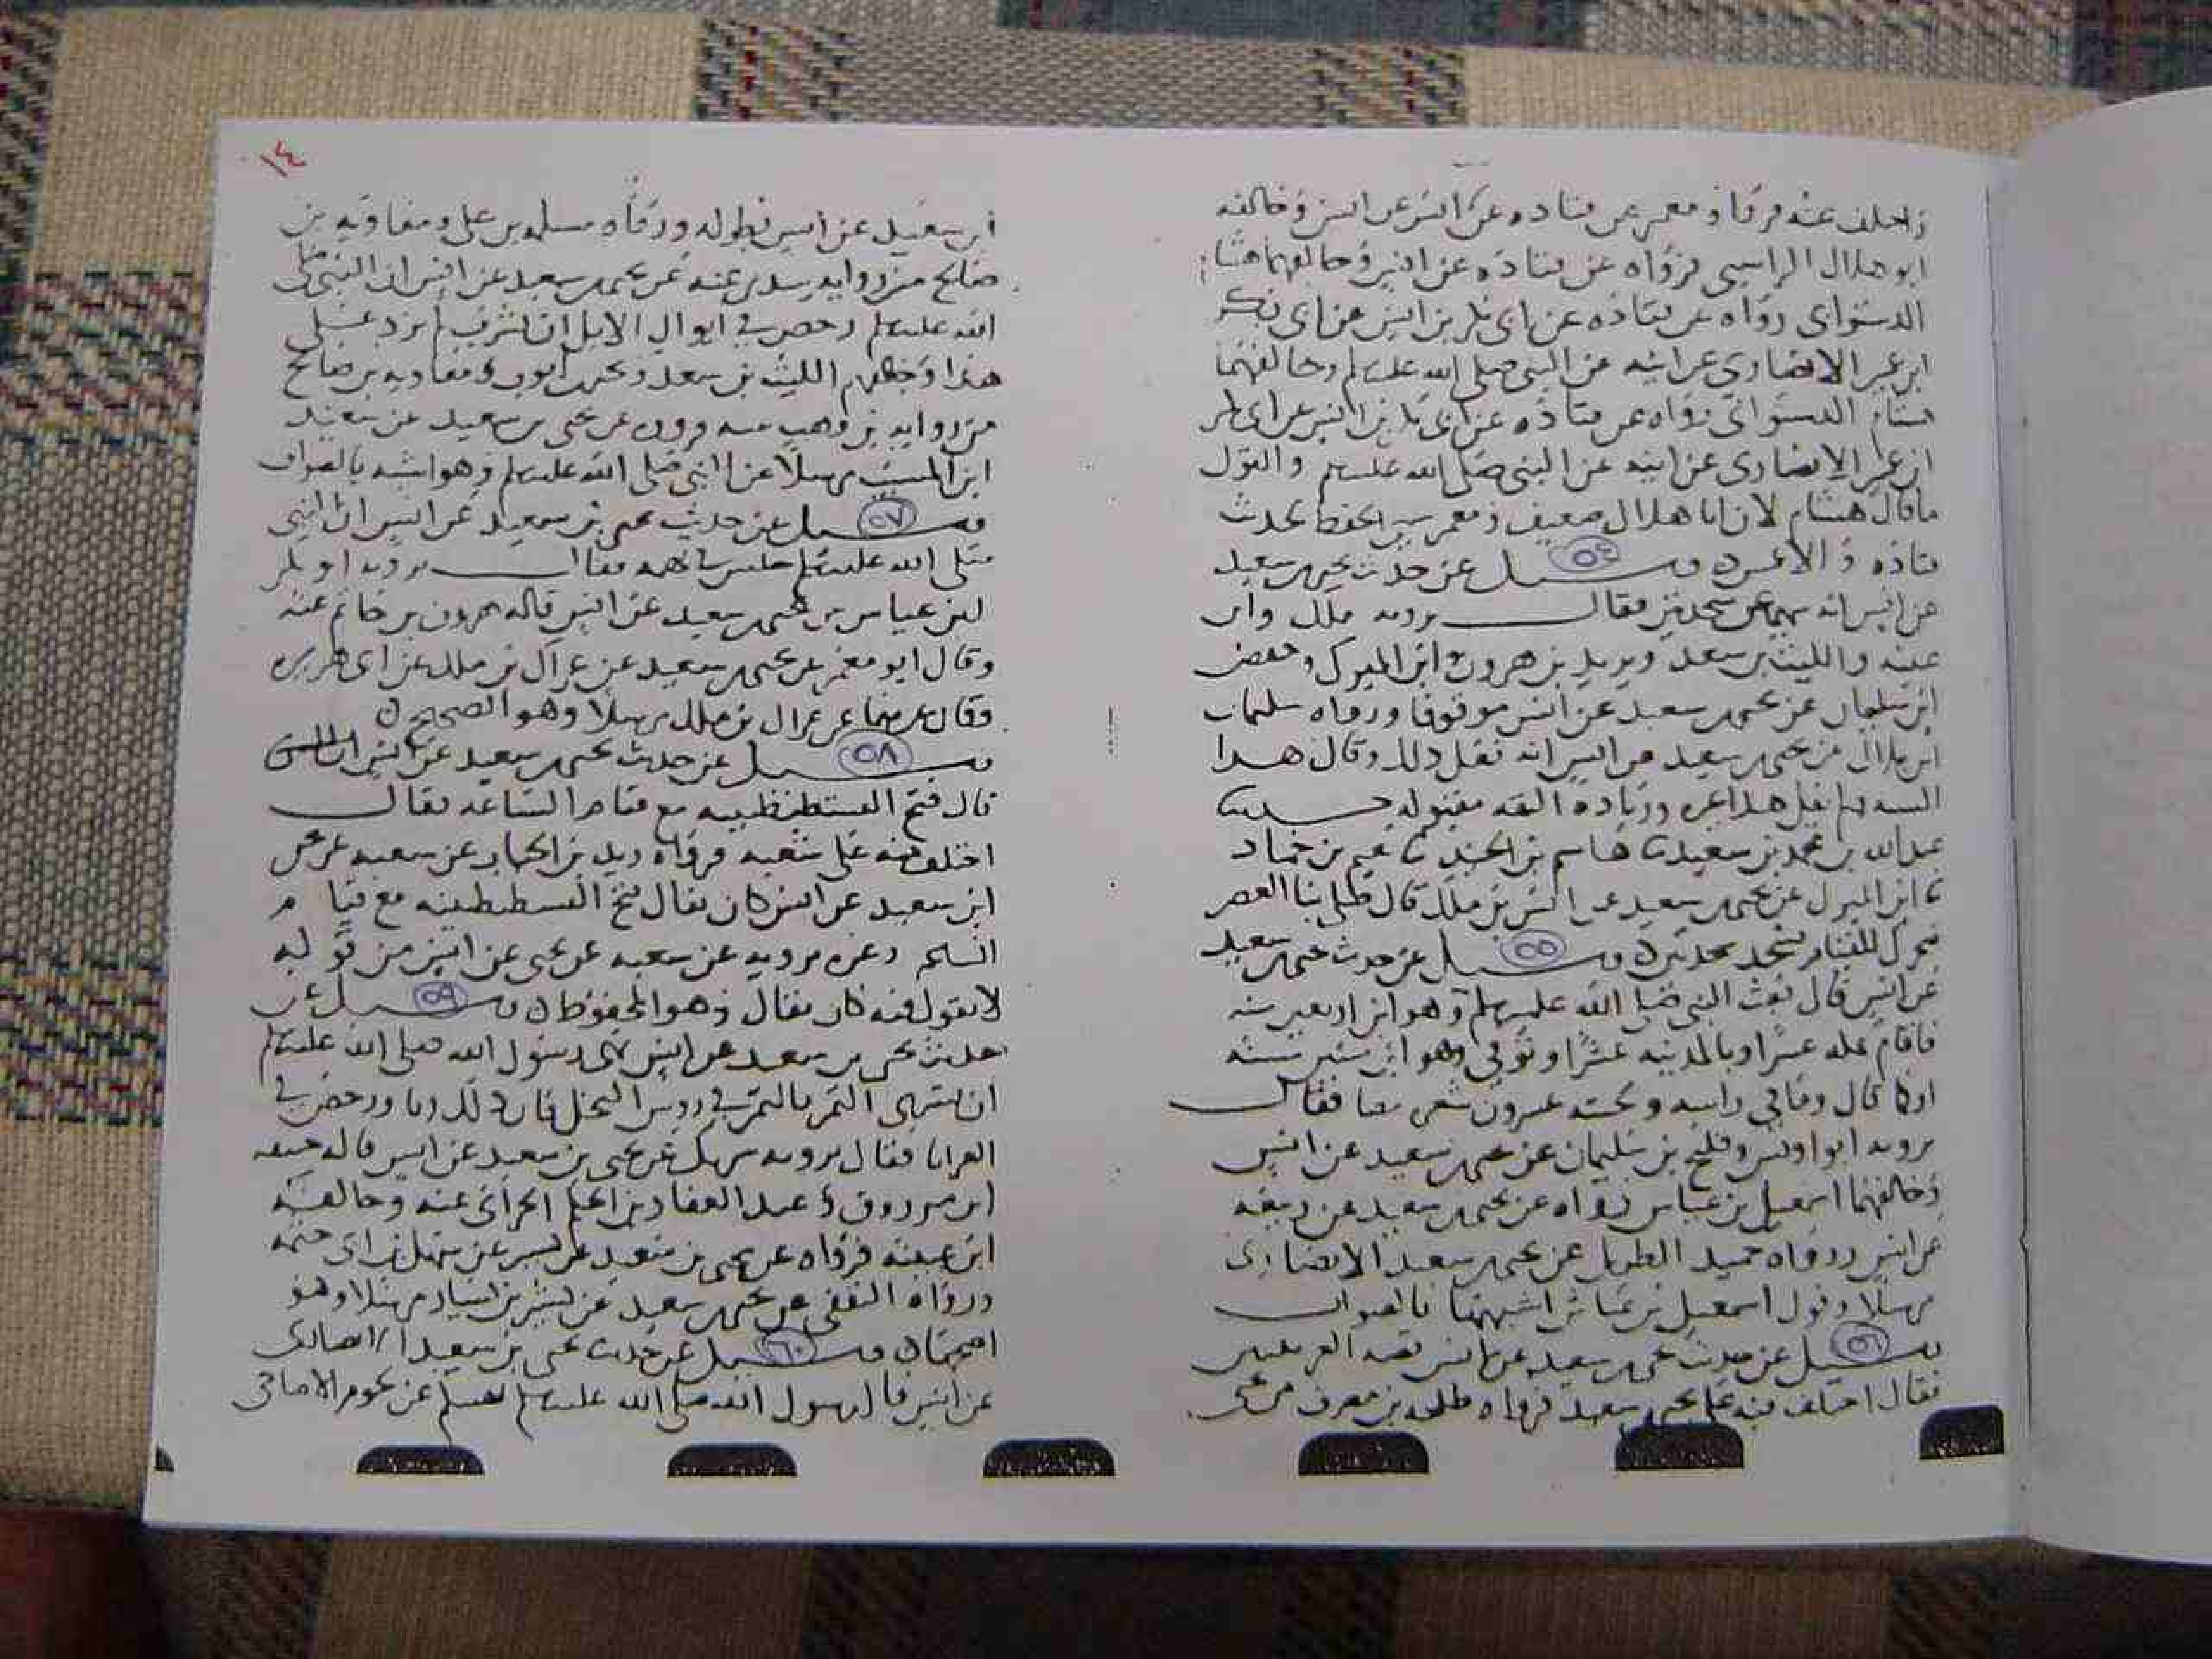 واختلف عنه فرواه معمر عن قتادة عن انس وخالفه
ابو هلال الراسبي فرواه عن قتادة عن انس وخالفهما هشام
الدستوائي رواه عن قتادة عن ابي بكر بن انس عن ابي بكر
ابن عمير الانصاري عن ابيه عن النبي صلى الله عليه وسلم وخالفهما
هشام الدستوائي رواه عن قتادة عن ابي بكر بن انس عن ابي بكر
ابن عمير الانصاري عن ابيه عن النبي صلى الله عليه وسلم والقول
ما قال هشام لان ابا هلال ضعيف ومعمر سيئ الحفظ لحديث
قتادة و الاعمش وسئل ٥٤ عن حديث يحيى بن سعيد
عن انس انه سها عن سجدتين فقال يرويه ملك وابن
عيينه والليث بن سعد ويزيد بن هرون وابن المبرك وحفص
ابن سليمان عن يحيى بن سعيد عن انس موقوفا ورواه سليمان
ابن بلال عن يحيى بن سعيد عن انس انه فعل ذلك وقال هذا
السنة ولم يقل هذا غيره وزيادة الثقة مقبولة حدثنا
عبد الله بن محمد بن سعيد ثنا هاشم بن الجنيد ثنا نعيم بن حماد
ثنا ابن المبرك عن يحيى بن سعيد عن انس بن ملك قال صلى بنا العصر
فتحرك للقيام فسجد سجدتين وسئل ٥٥ عن حديث يحيى بن سعيد
عن انس قال بعث النبي صلى الله عليه وسلم وهو ابن اربعين سنه
فاقام بمكه عشرا وبالمدينه عشرا وتوفي وهو ابن ستين سنه
او كما قال وما في راسه ولحيته عشرون شعره بيضا فقال
يرويه ابو اويس وفليح بن سليمان عن يحيى بن سعيد عن انس
وخالفهما اسمعيل بن عياش رواه عن يحيى بن سعيد عن ربيعه
عن انس ورواه حميد الطويل عن يحيى بن سعيد الانصاري
مرسلا وقول اسمعيل بن عياش اشبهها بالصواب
وسئل ٥٦ عن حديث يحيى بن سعيد عن انس قصه العرنيين
فقال اختلف فيه على يحيى بن سعيد فرواه طلحه بن مصرف عن يحيى
ابن سعيد عن انس بطوله ورواه مسلمه بن علي ومعاويه بن
صالح من روايه عنه عن يحيى بن سعيد عن انس ان النبي صلى
الله عليه وسلم رخص في ابوال الابل ان تشرب لم يزد على
هذا وخالفهم الليث بن سعد ويحيى بن ايوب ومعاويه بن صالح
من روايه بن وهب عنه فرووه عن يحيى بن سعيد عن سعيد
ابن المسيب مرسلا عن النبي صلى الله عليه وسلم وهو اشبه بالصواب
وسئل ٥٧ عن حديث يحيى بن سعيد عن انس ان النبي
صلى الله عليه وسلم فقال يرويه ابو بكر
ابن عياش عن يحيى بن سعيد عن انس قاله هرون بن حاتم عنه
وقال ابو معمر عن يحيى بن سعيد عن عراك بن ملك عن ابي هريره
وقال غيرهما عن عراك بن ملك مرسلا وهو الصحيح
وسئل ٥٨ عن حديث يحيى بن سعيد عن انس
قال فتح القسطنطينيه مع قيام الساعه فقال
اختلف فيه على شعبه فرواه زيد بن الحباب عن شعبه عن يحيى
ابن سعيد عن انس كان يقال فتح القسطنطينيه مع قيام
الساعه وغيره يرويه عن شعبه عن يحيى عن انس من قوله
لا يقول فيه كان يقال وهو المحفوظ وسئل ٥٩ عن
حديث يحيى بن سعيد عن انس نهى رسول الله صلى الله عليه وسلم
ان يشترى التمر بالتمر في رؤس النخل قال ذلك ربا ورخص في
العرايا فقال يرويه عن يحيى بن سعيد عن انس قاله
ابن مرزوق عبد الغفار بن الحراني عنه وخالفه
ابن عيينه فرواه عن يحيى بن سعيد عن بشير عن سهل بن ابي حثمه
ورواه الثقفي عن يحيى بن سعيد عن بشير بن يسار مرسلا وهو
اصحها وسئل ٦٠ عن حديث يحيى بن سعيد الانصاري
عن انس قال رسول الله صلى الله عليه وسلم عن لحوم الاضاحي
١٤